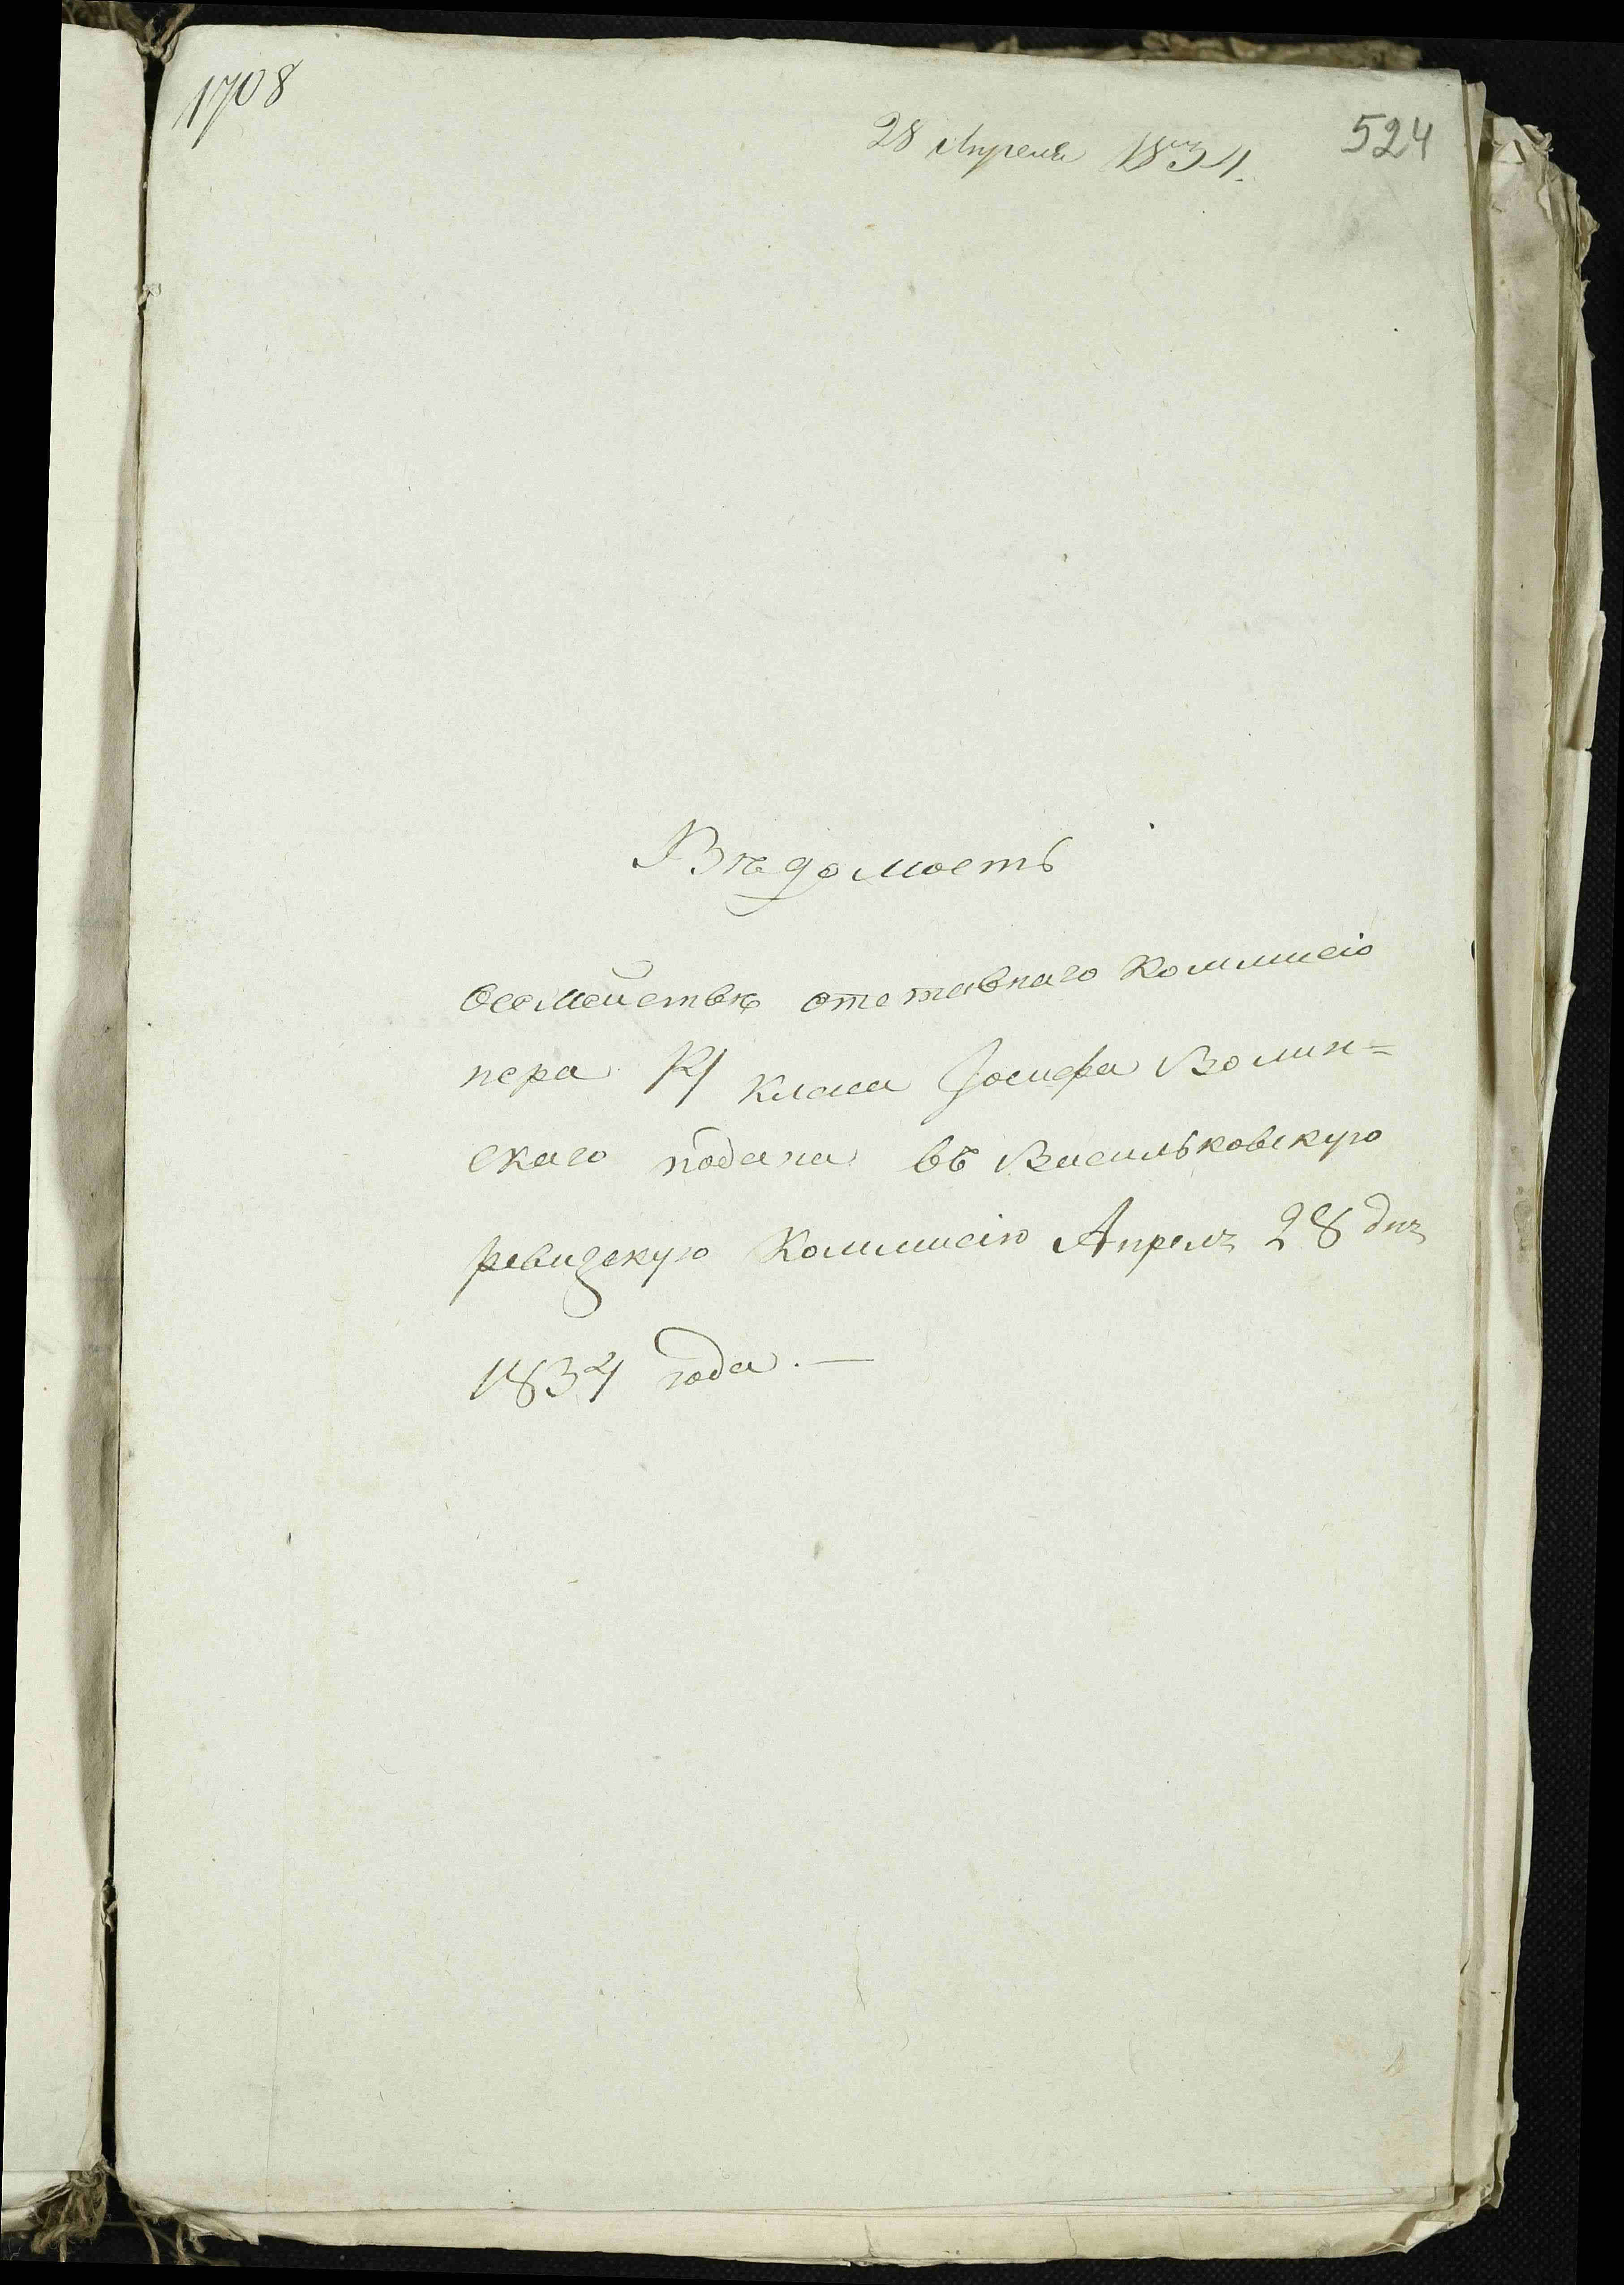 1708
28 Апреля 1834.
524
Вѣдомость
Осемействѣ отставнаго Коммисіо
нера класа Іосифа Волин=
скаго подана въ Васильковскую
ревизскую Коммисію Апреля 28 дня
1834 года. —